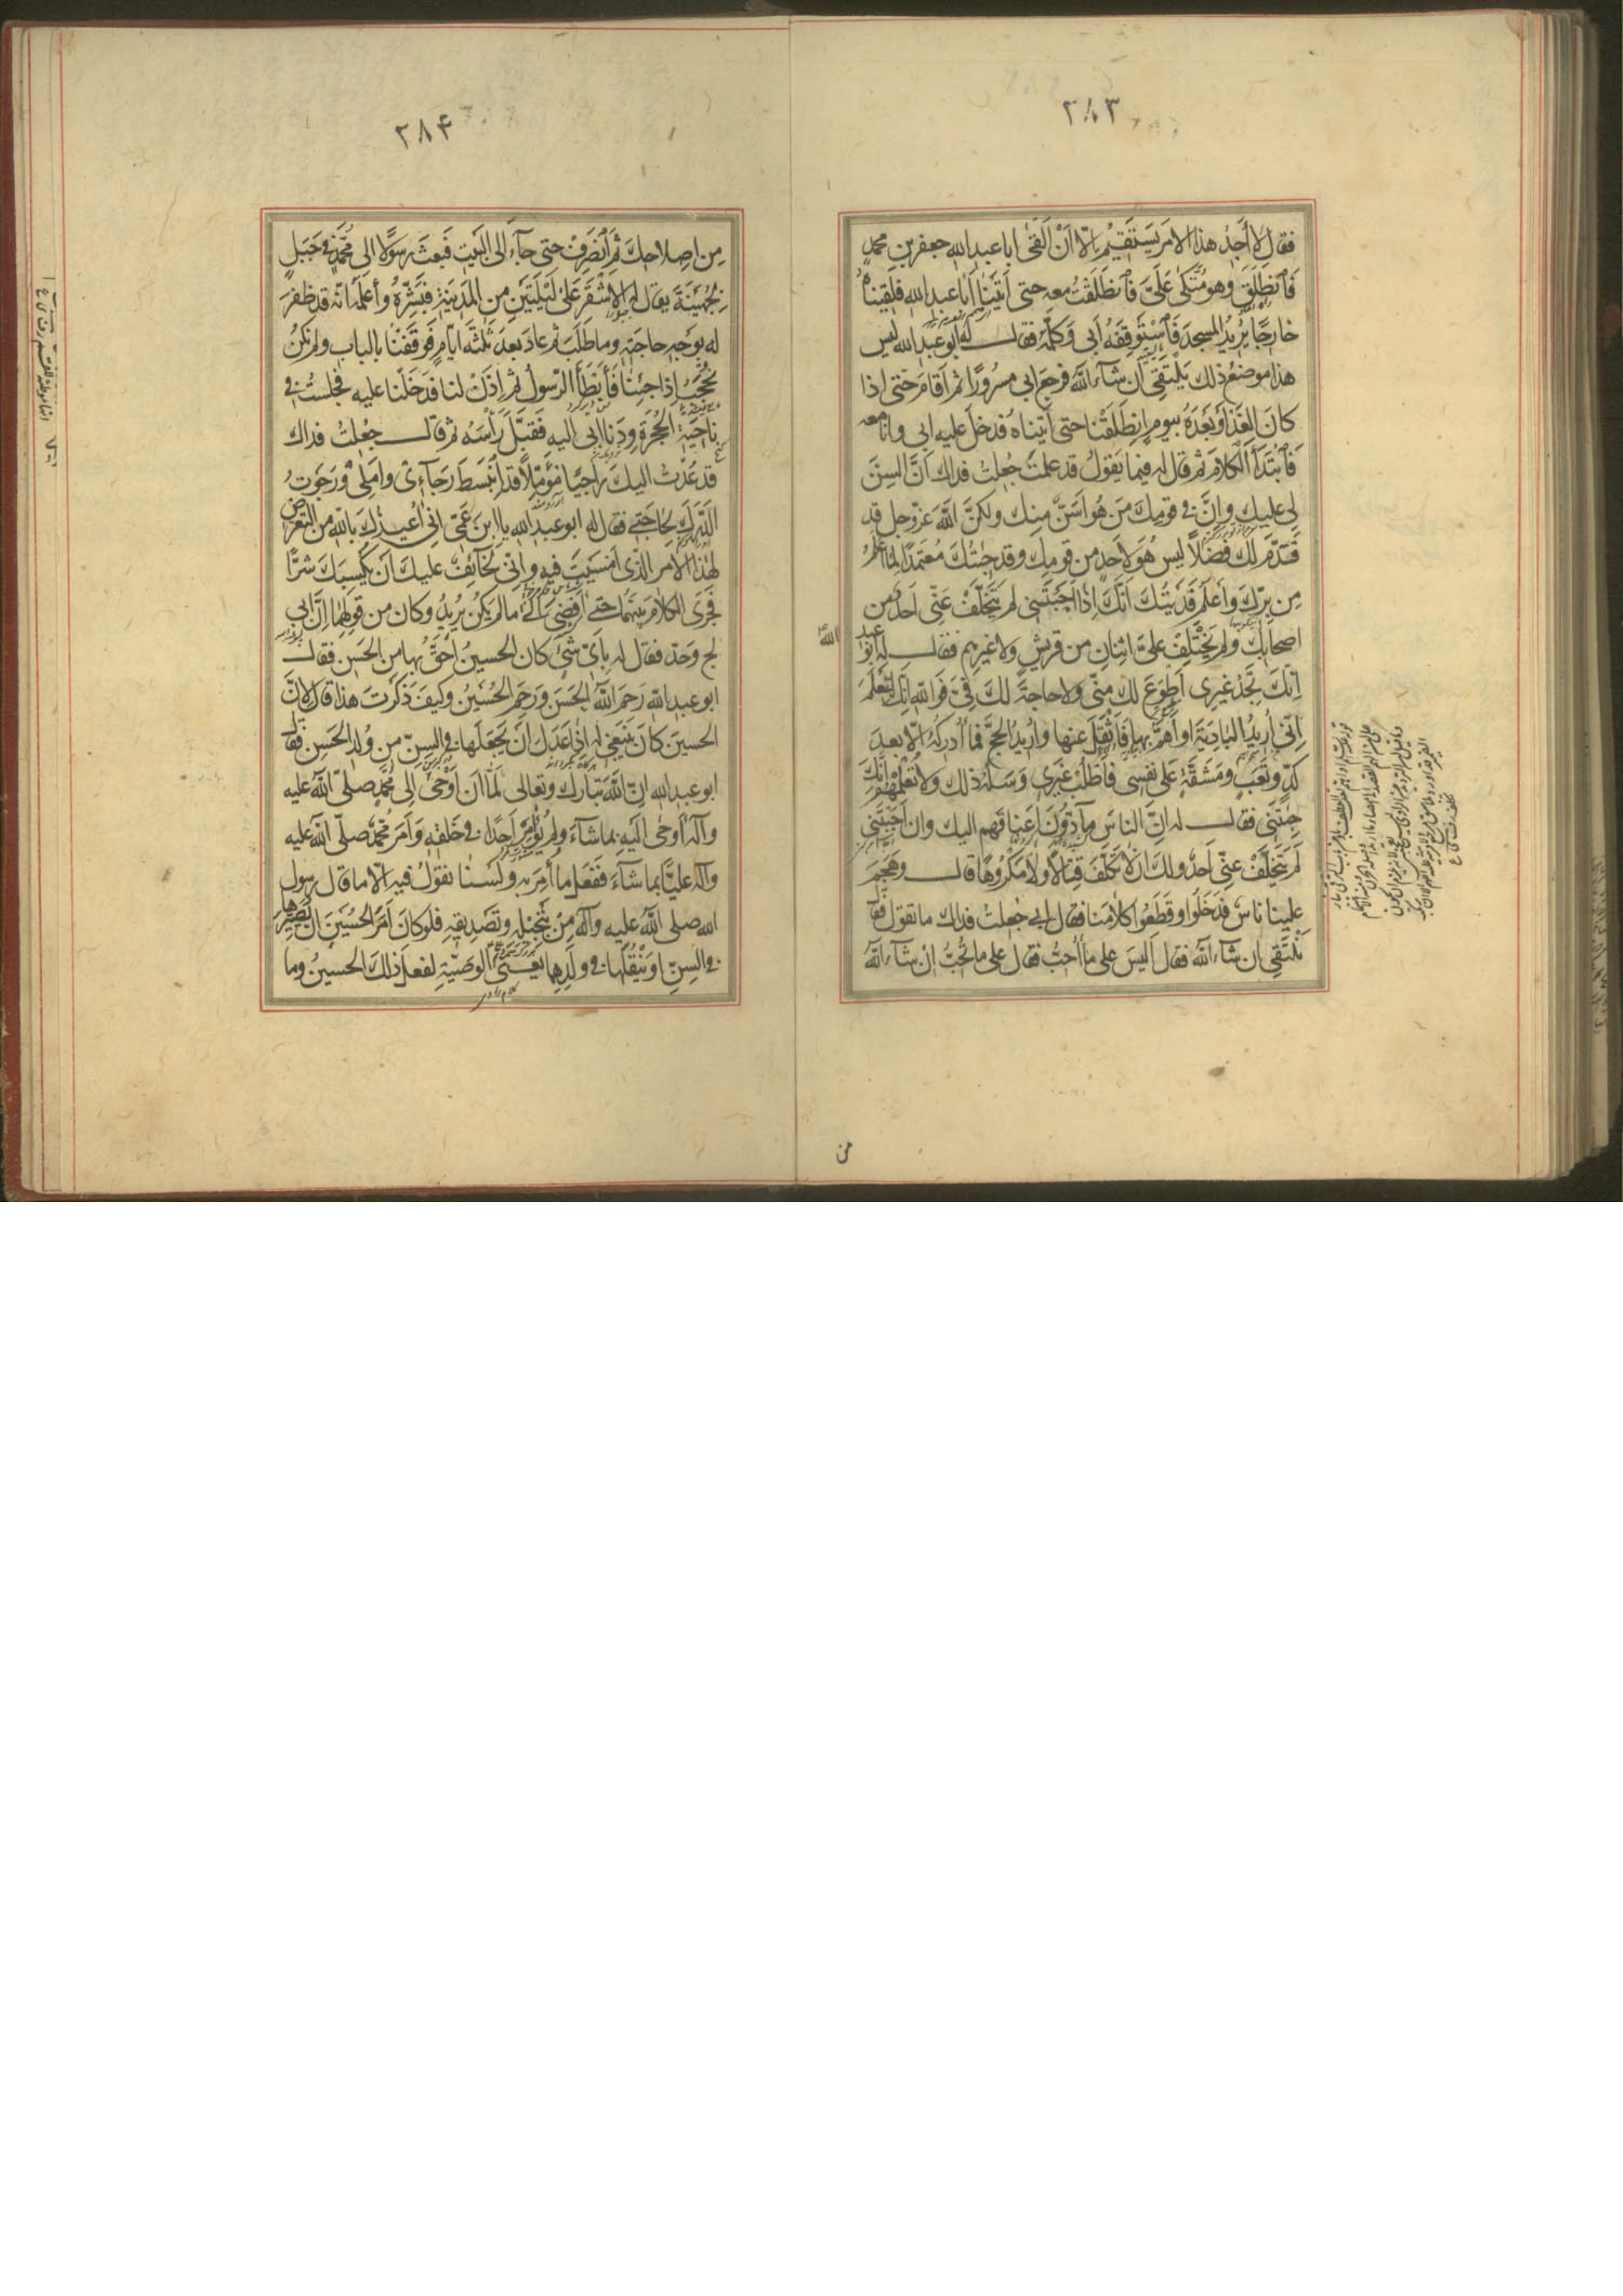 ٢٨٣
فقال لا أجد هذا الامر يستقيم الا ان القى ابا عبد الله جعفر بن محمد
فانطلق وهو متكئ علي فانطلقت معه حتى اتينا ابا عبد الله فلقيناه
خارجا يريد المسجد فاستوقفه ابي وكلمه فقال له ابو عبد الله ليس
هذا موضع ذلك نلتقي ان شاء الله فرجع ابي مسرورا ثم اقام حتى اذا
كان الغد او بعده بيوم انطلقنا حتى اتيناه فدخل عليه ابي وانا معه
فابتدأ الكلام ثم قال له فيما يقول قد علمت جعلت فداك ان السن
لي عليك وان في قومك من هو اسن منك ولكن الله عز وجل قد
قدم لك فضلا ليس هو لاحد من قومك وقد جئتك معتمدا لما اعلم
من برك واعلم فديتك انك اذا اجبتني لم يتخلف عني احد من
اصحابك ولم يختلف علي اثنان من قريش ولا غيرهم فقال له ابو عبد
الله
انك تجد غيري اطوع لك مني ولا حاجة لك في فوالله انك لتعلم
اني اريد البادية او اهم بها فاثقل عنها واريد الحج فما ادركه الا بعد
كد وتعب ومشقة على نفسي فاطلب غيري وسله ذلك ولا تعلمهم انك
جئتني فقال له ان الناس مادون اعناقهم اليك وان اجبتني
لم يتخلف عني احد ولك ان لا تكلف قتالا ولا مكروها قال وهجم
علينا ناس فدخلوا وقطعوا كلامنا فقال ابي جعلت فداك ما تقول فقال
نلتقي ان شاء الله فقال اليس على ما احب فقال على ما تحب ان شاء الله
من
٢٨۴
من اصلاحك ثم انصرف حتى جاء الى البيت فبعث رسولا الى محمد في جبل
بجهينة يقال له الاشقر على ليلتين من المدينة فبشره واعلمه انه قد ظفر
له بوجه حاجته وما طلب ثم عاد بعد ثلثة ايام فوقفنا بالباب ولم نكن
نحجب اذا جئنا فأبطأ الرسول ثم اذن لنا فدخلنا عليه فجلست في
ناحية الحجرة ودنا ابي اليه فقبل رأسه ثم قال جعلت فداك
قد عدت اليك راجيا مؤملا قد انبسط رجاءي واملي ورجوت
الدرك لحاجتي فقال له ابو عبد الله يا ابن عمي اني اعيذك بالله من التعرض
لهذا الامر الذي امسيت فيه واني لخائف عليك ان يكسبك شرا
فجرى الكلام بينهما حتى افضى الى ما لم يكن يريد وكان من قوله ابي
باي شيء كان الحسين احق بها من الحسن فقال
ابو عبد الله رحم الله الحسن ورحم الحسين وكيف ذكرت هذا قال لان
الحسين كان ينبغي له اذا عدل ان يجعلها في السن من ولد الحسن فقال
ابو عبد الله ان الله تبارك وتعالى لما ان اوحى الى محمد صلى الله عليه
وآله اوحى اليه بما شاء ولم يؤامر احدا في خلقه وامر محمد صلى الله عليه
وآله عليا بما شاء ففعل ما امر به ولسنا نقول فيه الا ما قال رسول
الله صلى الله عليه وآله من تبجيله وتصديقه فلو كان امر الحسين ان يصيرها
في السن او ينقلها في ولدها يعني الوصية لفعل ذلك الحسين وما